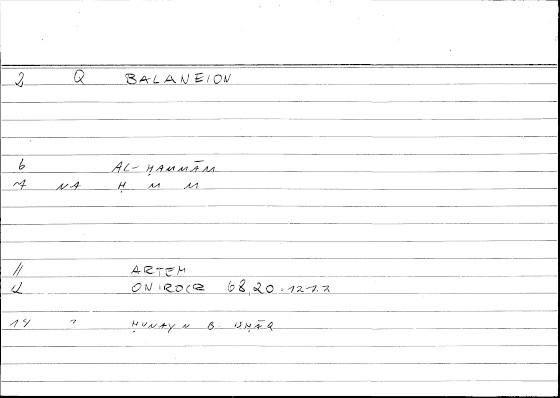 2 Q BALANEION
6 AL-ḤAMMĀM
7 NA Ḥ M M
11 ARTEM
12 ONIROCR 68,20 = 121.7
14 ḤUNAYN B. ISḤĀQ